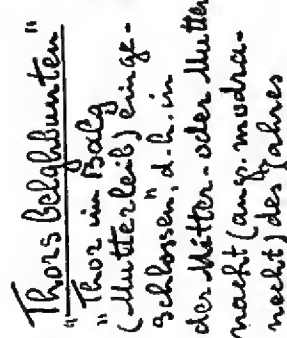 "Thors Belghbunten"
"Thor im Balg
(Mutterleib) einge-
schlossen", d.h. in
der Mütter- oder Mutter
nacht (ang. modra-
necht) des Jahres